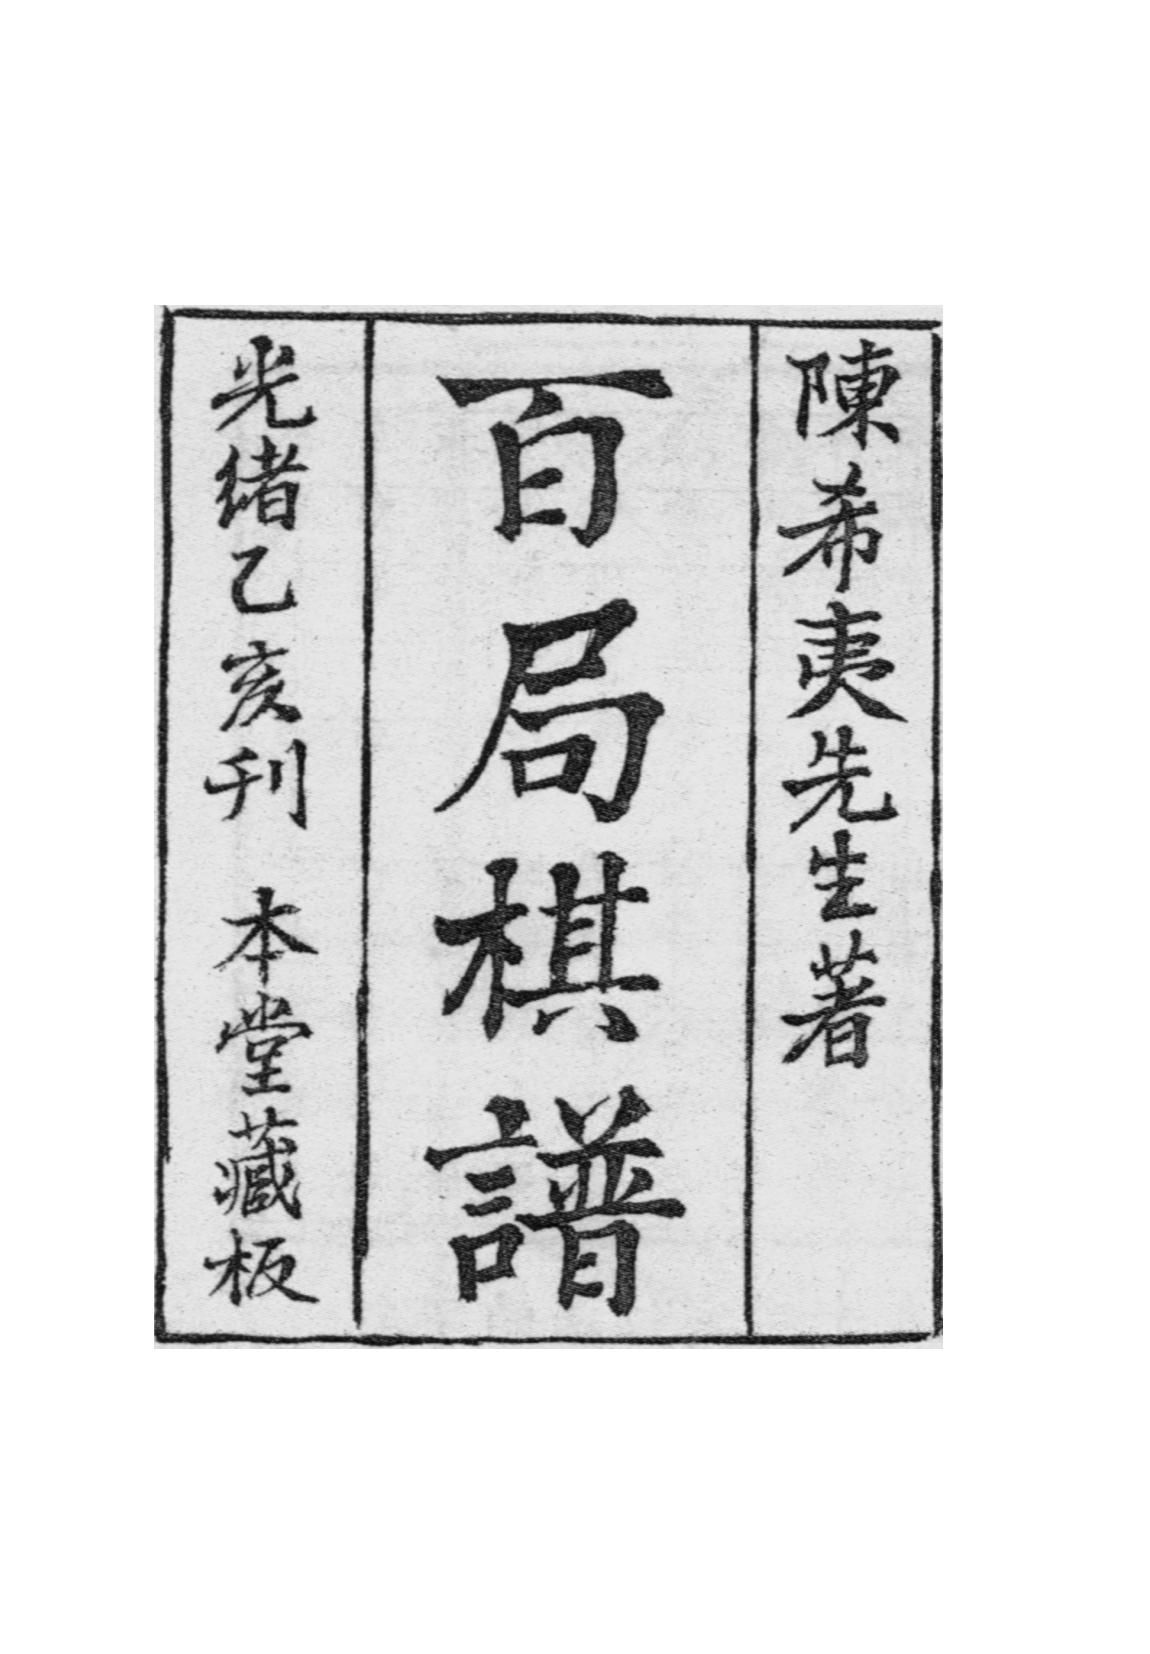 陳希夷先生著
百局棋譜
光緒乙亥刊　本堂藏板